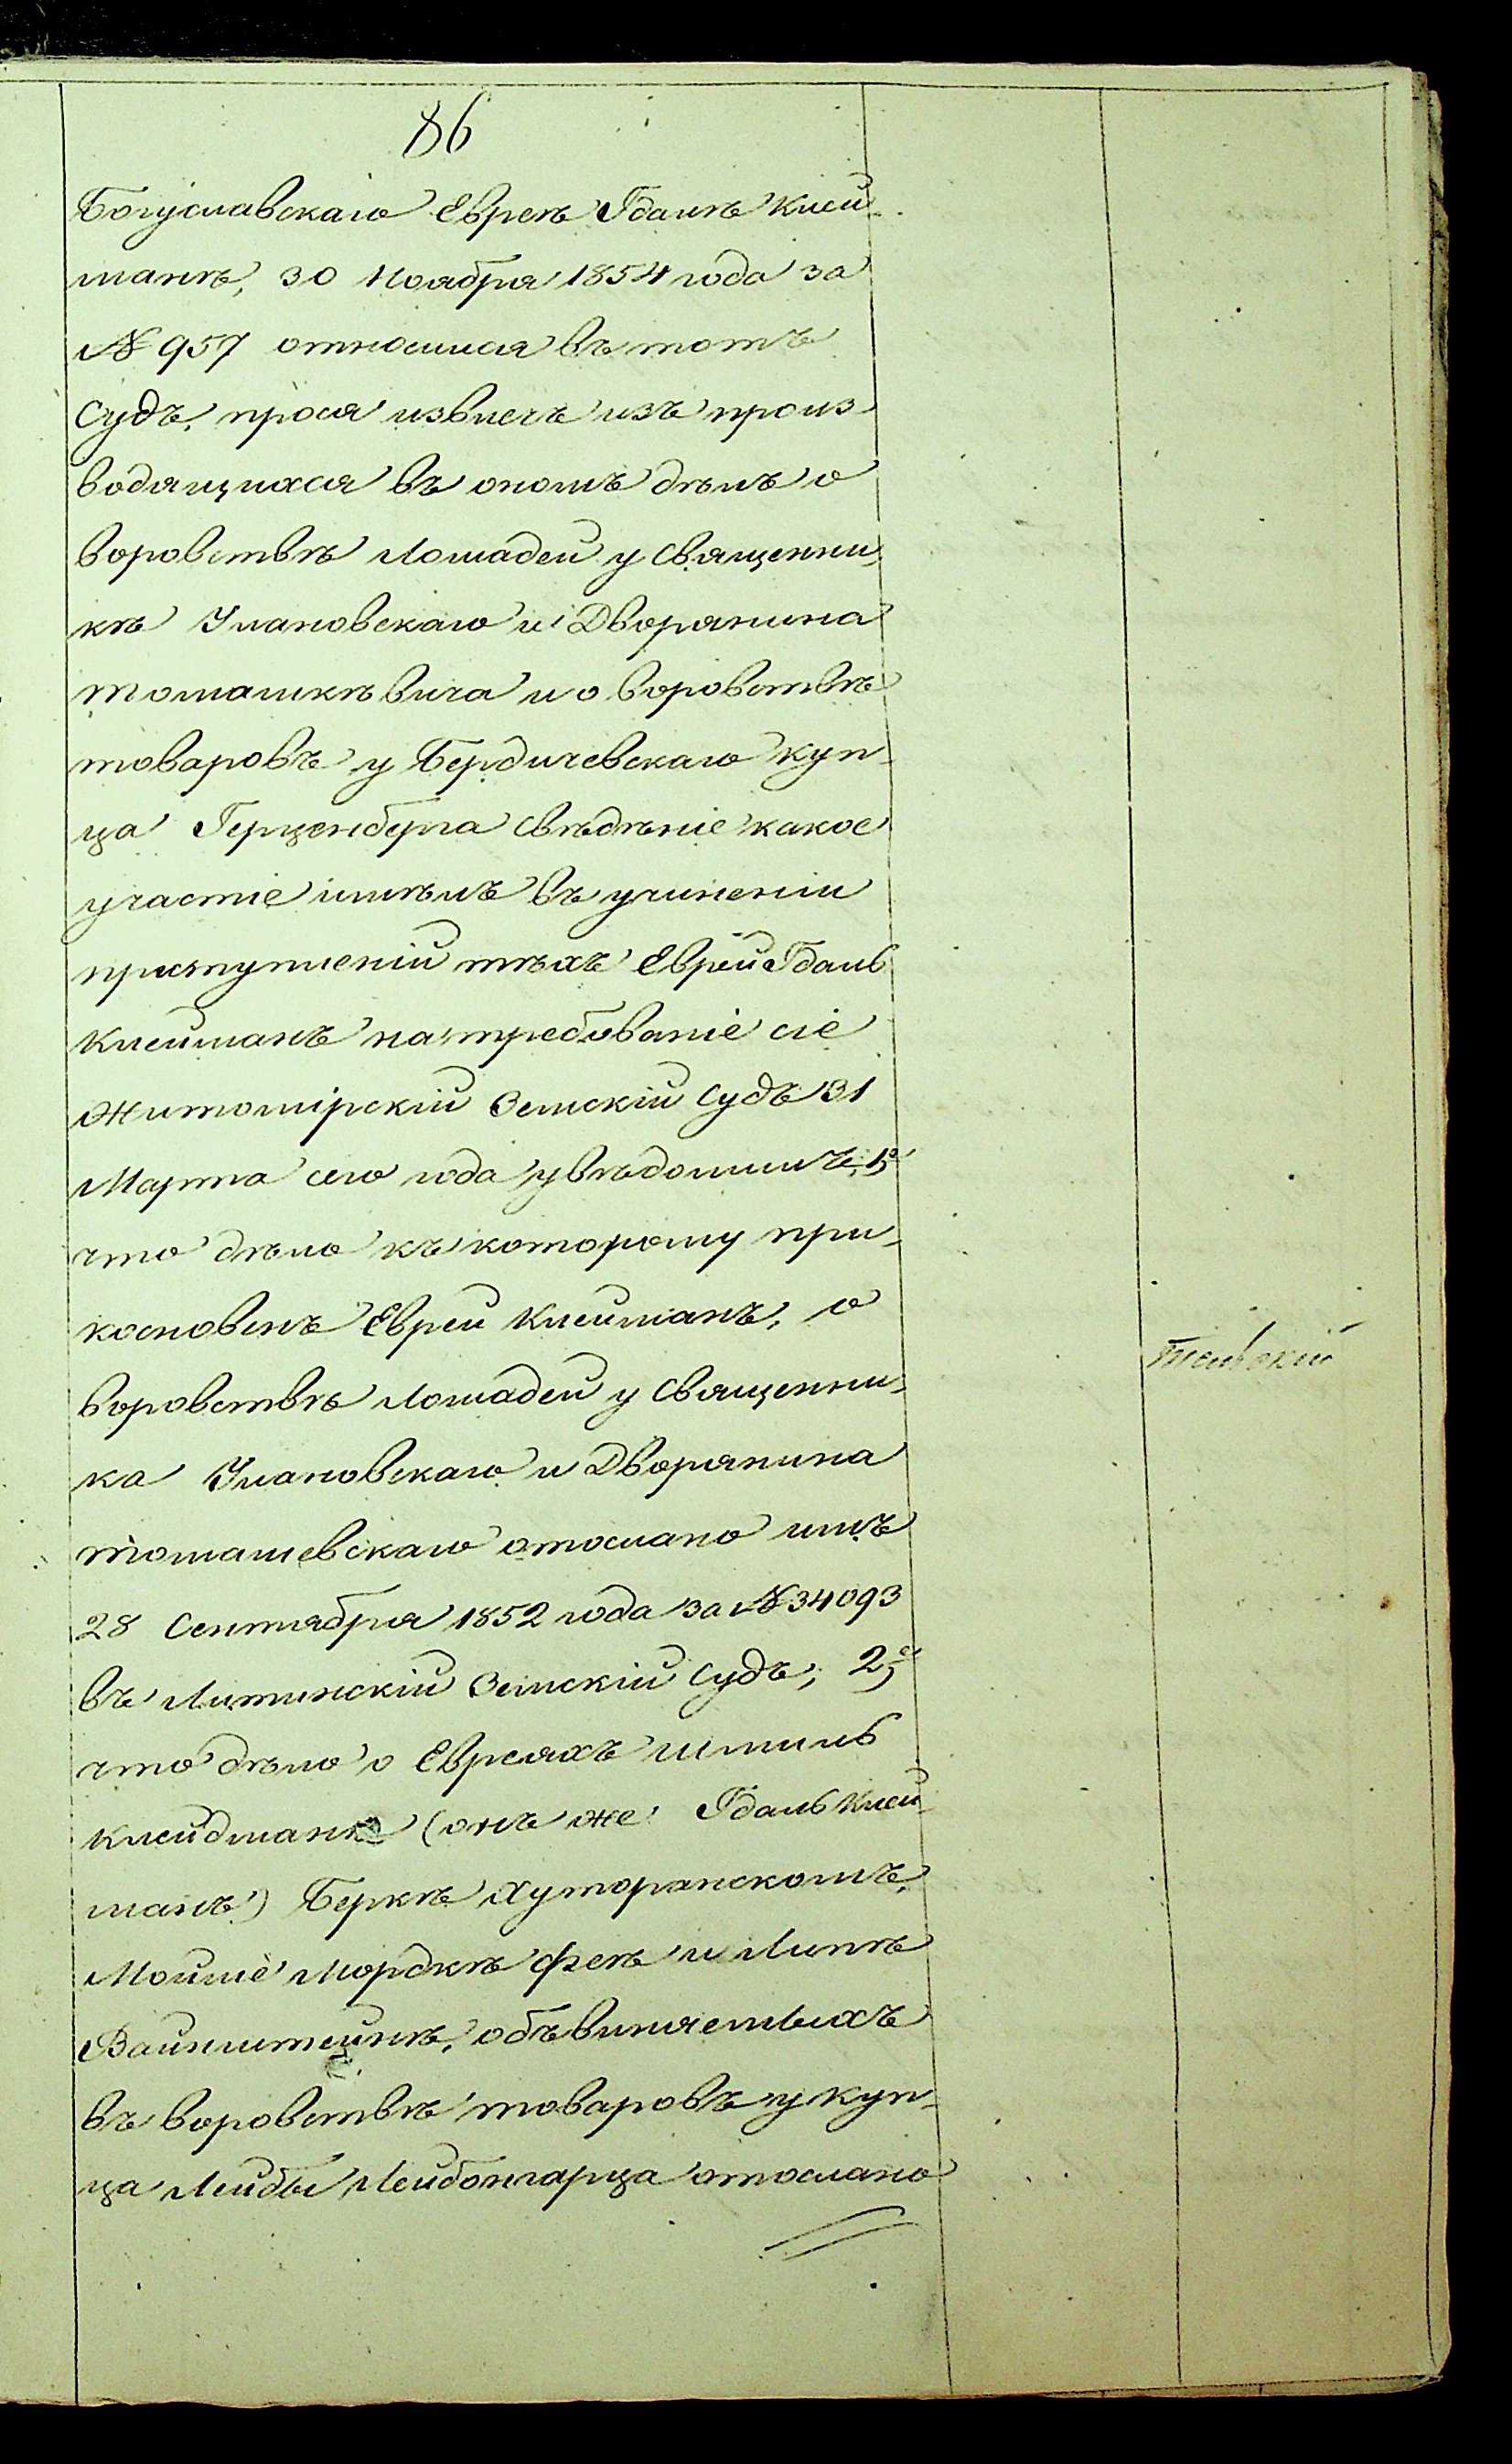 86
Богуславскаго Евреѣ Гдалѣ Клей-
манѣ, 30 Ноября 1854 года за
№ 957 относился въ тотъ
Судъ, прося извлечь изъ произ-
водящихся въ ономъ дѣлъ о
воровствѣ Лошадей у Священни-
кѣ Улановскаго и Дворянина
Томашкѣвича и о воровствѣ
товаровъ у Бердичевскаго куп-
ца Герценберга Свѣдѣніе какое
участіе имѣлъ въ учиненіи
приступленій тѣхъ Еврей Гдаль
Клейманъ на требованіе сіе
Житомірскій Земскій Судъ 31
Марта сего года увѣдомилъ, 1е
что дѣло къ которому при-
косновенъ Еврей Клейманъ, о
воровствѣ Лошадей у Священни-
ка Улановскаго и Дворянина
Томашевскаго отослано имъ
28 Сентября 1852 года за № 34093
въ Литинскій Земскій Судъ; 2е
что дѣло о Евреяхъ Шмиль
Клейдманѣ (онъ же Гдаль Клей-
манъ) Беркѣ Хуторанскомъ,
Мойше Мордкѣ Фев и Липѣ
Вайнштейнѣ, объвиняемыхъ
въ воровствѣ товаровъ у куп-
ца Лейбы Лейбонгарца отослано